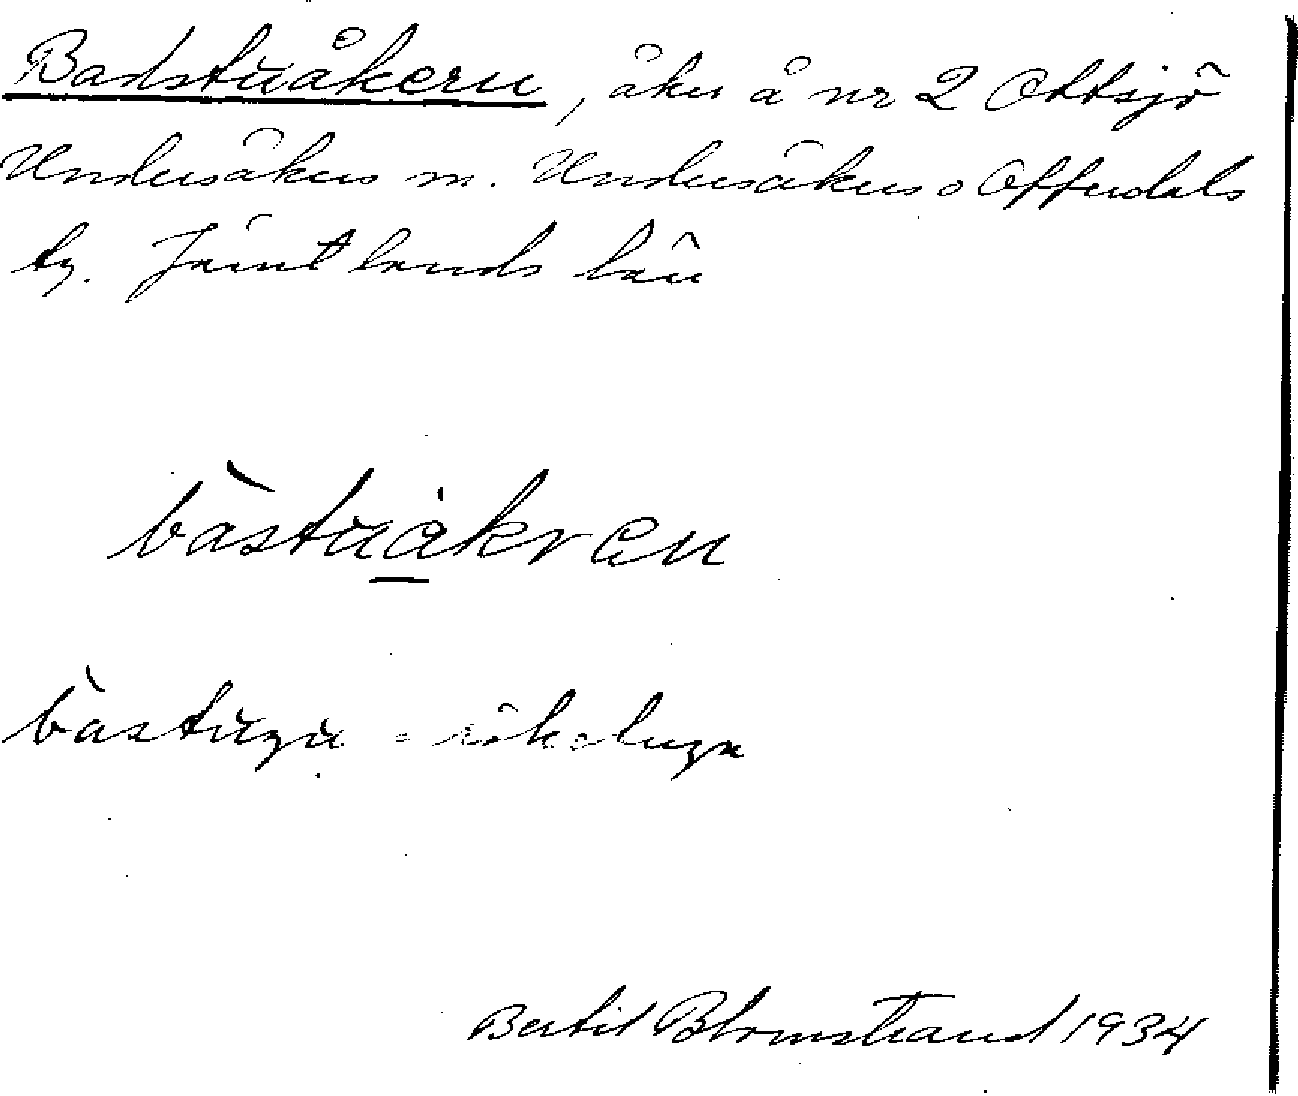 Badstuåkern, åker å nr 2 Ottsjö
Undersåkers sn. Undersåkers o Offerdals
tg. Jämtlands län
bàstuåkren
bàstugu = rökstuga
Bertil Blomstrand 1934